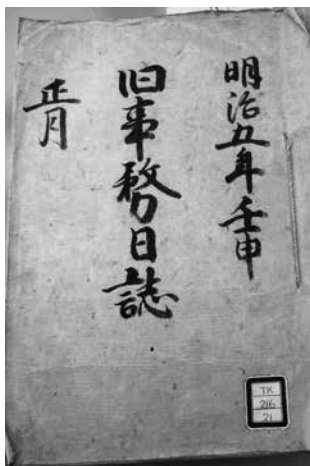 明治五年壬申
旧事務日誌
正月
TK
216
21